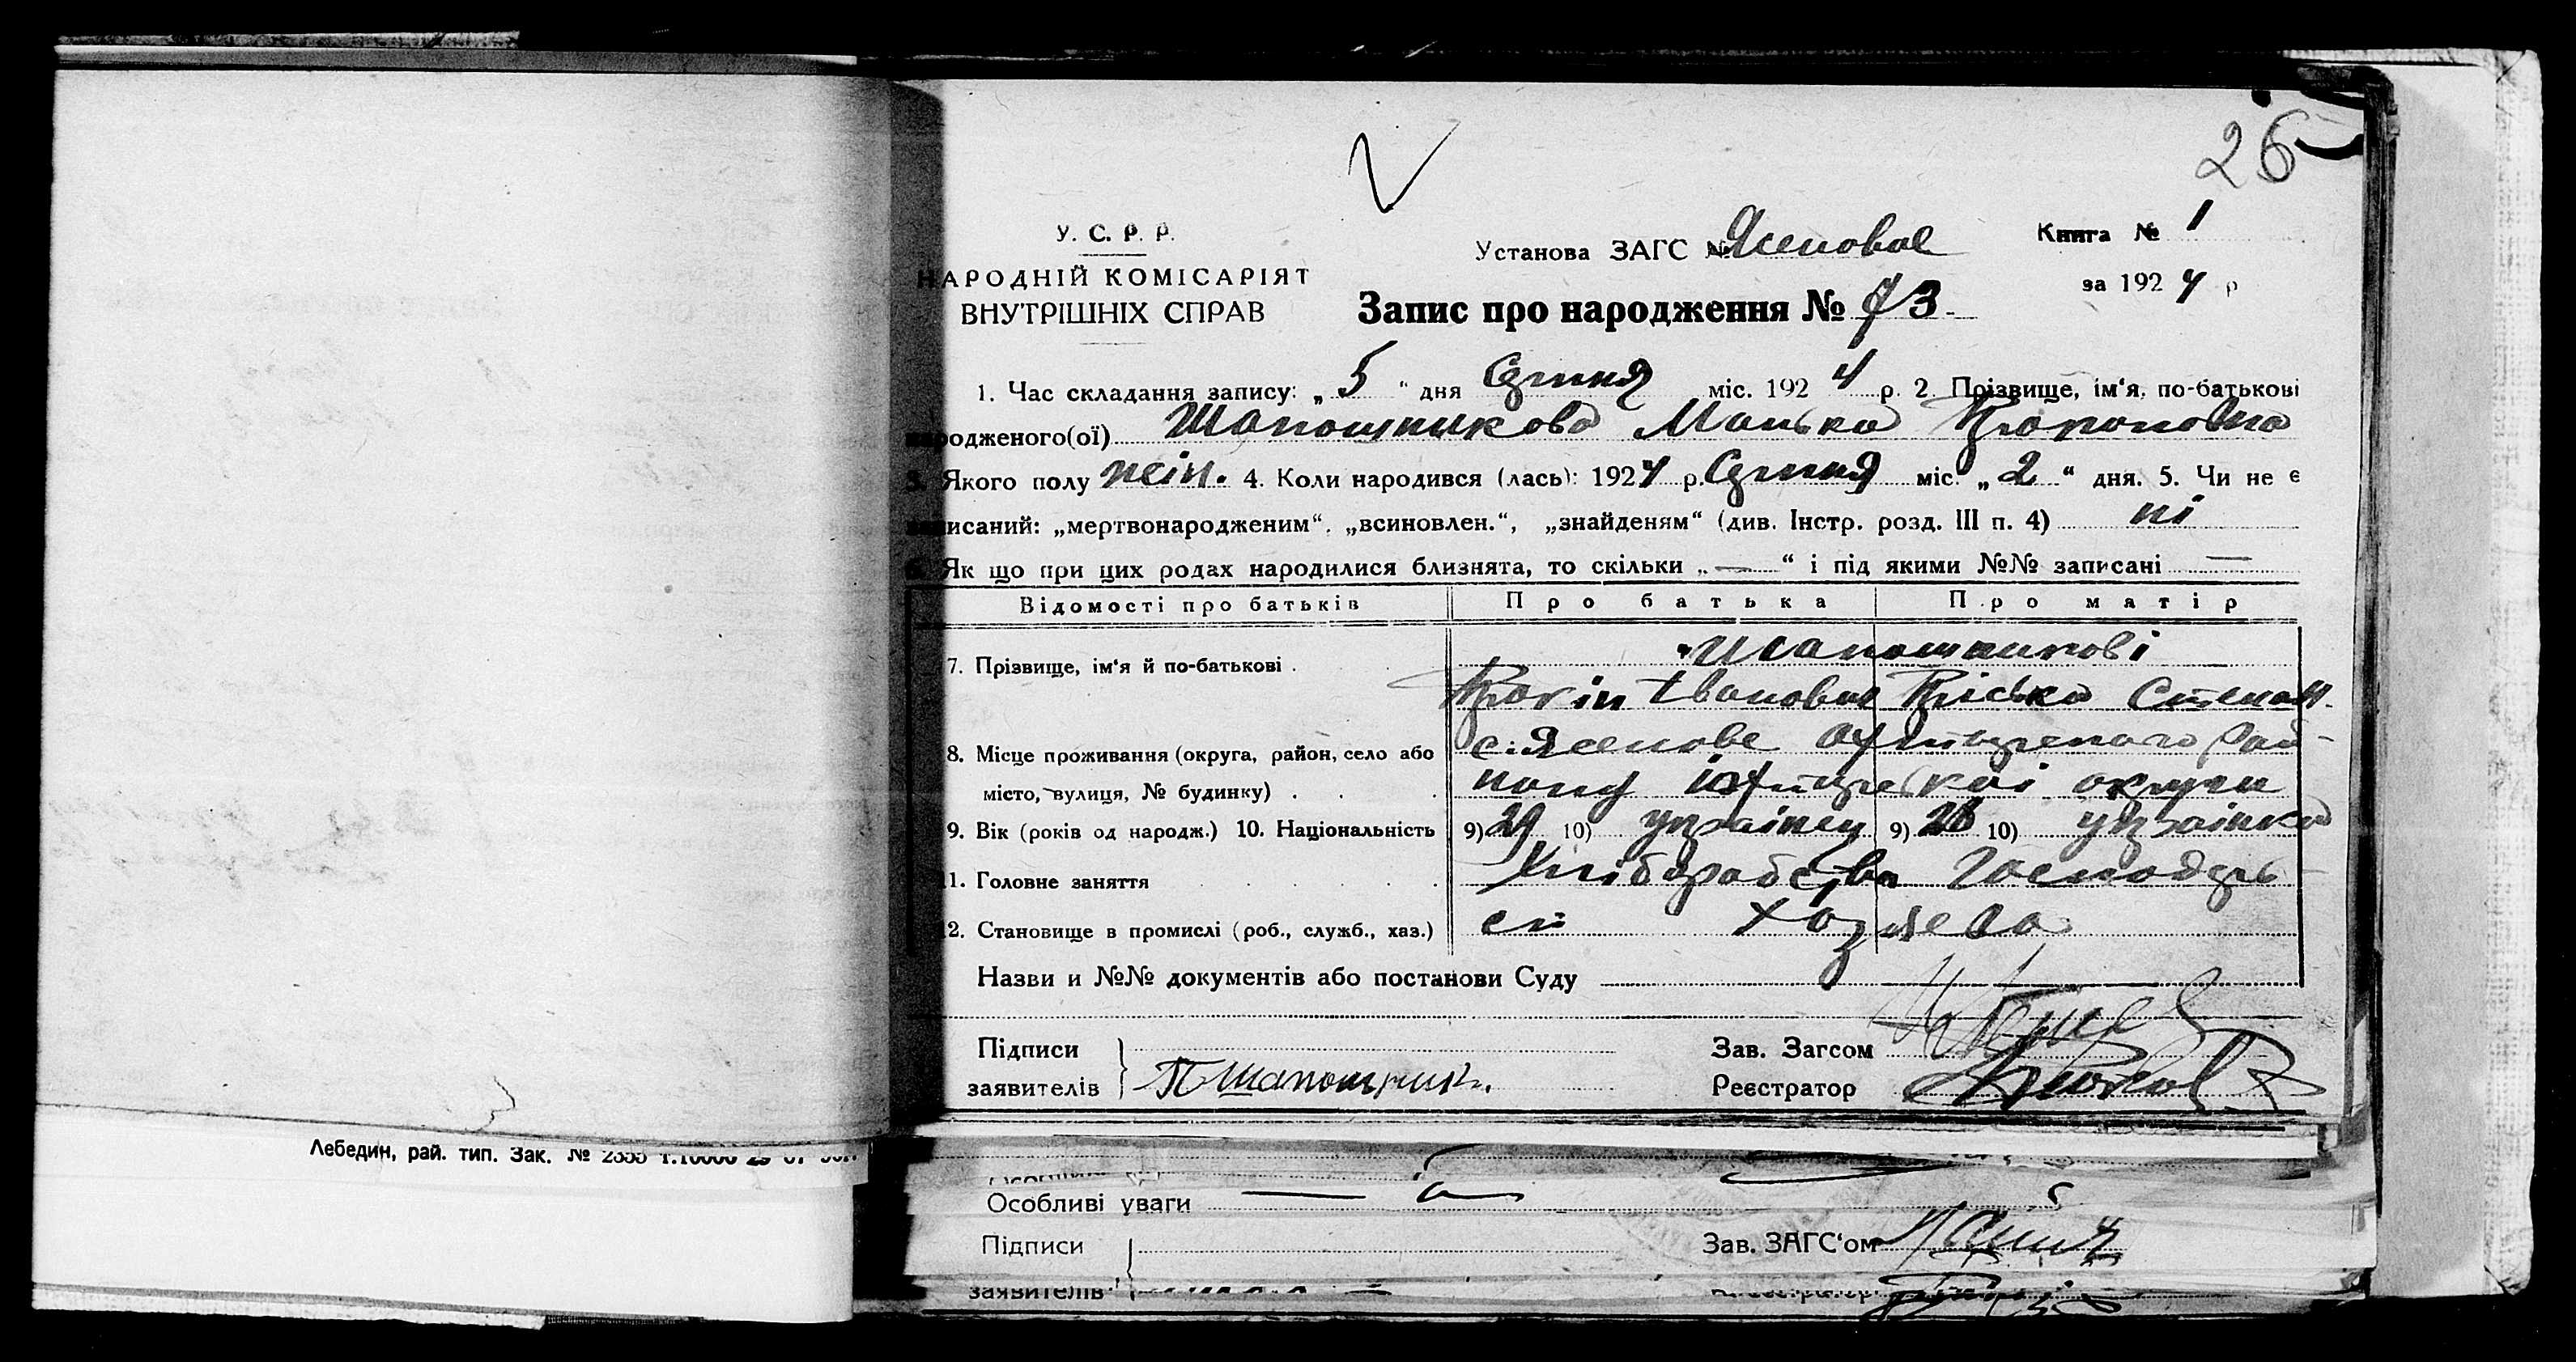 26
У. С. Р. Р.
НАРОДНІЙ КОМІСАРІЯТ
ВНУТРІШНІХ СПРАВ
Установа ЗАГС № Ясеновое
Книга № 1
за 1924 р
Запис про народження № 73
1. Час складання запису: „5“ дня Грудня міс. 1924 р. 2. Прізвище, ім‘я, по-батькові
народженого(ої) Шапошникова Манька
3. Якого полу жін. 4. Коли народився (лась): 1924 р. Грудня міс. „2“ дня. 5. Чи не є
записаний: „мертвонародженим“, „всиновлен.“, „знайденям“ (див. Інстр. розд. III п. 4) ні
6. Як що при цих родах народилися близнята, то скільки „—“ і під якими №№ записані —
Відомості про батьків Про батька Про матір
7. Прізвище, ім‘я й по-батькові . Шапошникові
Іванович Пріська Степан.
8. Місце проживання (округа, район, село або с. Ясенове Охтирского рай-
місто, вулиця, № будинку) . . . ону Охтирської округи
9. Вік (років од народж.) 10. Національність 9) 29 10) українец 9) 28 10) українка
11. Головне заняття Хліборобства Господарь
12. Становище в промислі (роб., служб., хаз.) хазяева
Назви и №№ документів або постанови Суду
Підписи
заявителів П Шапошник.
Зав. Загсом
Реєстратор
Лебедин, рай. тип. Зак. №
Особливі уваги —
Підписи
Зав. ЗАГС‘ом
заявителів